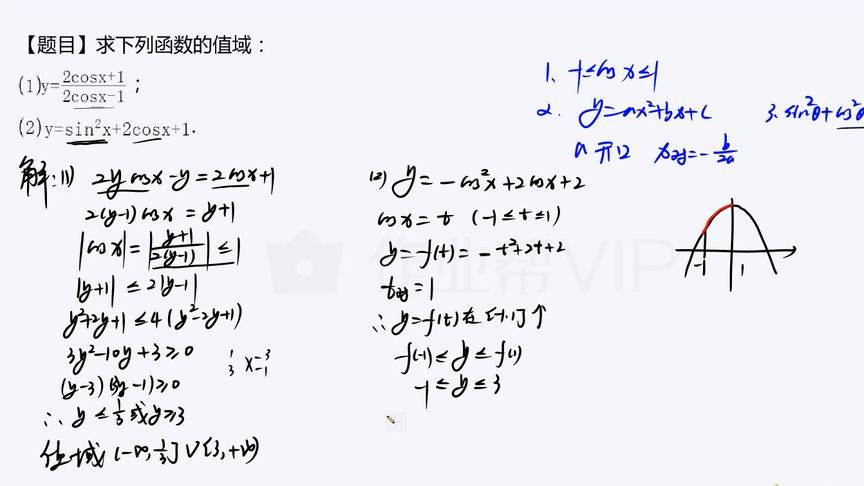 【题目】求下列函数的值域：
(1)y=(2cosx+1)/(2cosx-1)；
(2)y=sin²x+2cosx+1.
1. -1≤cosx≤1
2. y=ax²+bx+c
3. sin²θ+cos²θ
a 开口 x对=-b/2a
解:(1) 2ycosx-y=2cosx+1
2(y-1)cosx=y+1
|cosx|=|(y+1)/(2(y-1))|≤1
|y+1|≤2|y-1|
y²+2y+1≤4(y²-2y+1)
3y²-10y+3≥0
1 3
3 -1
(y-3)(3y-1)≥0
∴ y≤1/3或y≥3
值域(-∞,1/3]∪[3,+∞)
(2) y=-cos²x+2cosx+2
cosx=t (-1≤t≤1)
y=f(t)=-t²+2t+2
t对=1
∴y=f(t)在[-1,1]↑
f(-1)≤y≤f(1)
-1≤y≤3
-1 1
作业帮VIP